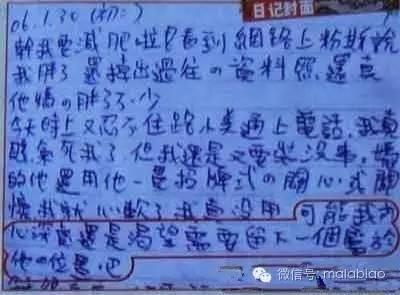 日记封面
06.1.30 (初二)
幹我要減肥啦!看到網路上粉斯說
我胖了還掉出過往の資料照,還真
他媽の胖了不少
今天時上又忍不住路小美通上電話,我真
氣死我了.但我還是又要裝沒事,媽
的他還用他一曼招牌式の關心或關
懷我就心軟了我真沒用 可能我內
心深處還是渴望需要留下一個屬於
他の位置,
微信号: malabiao